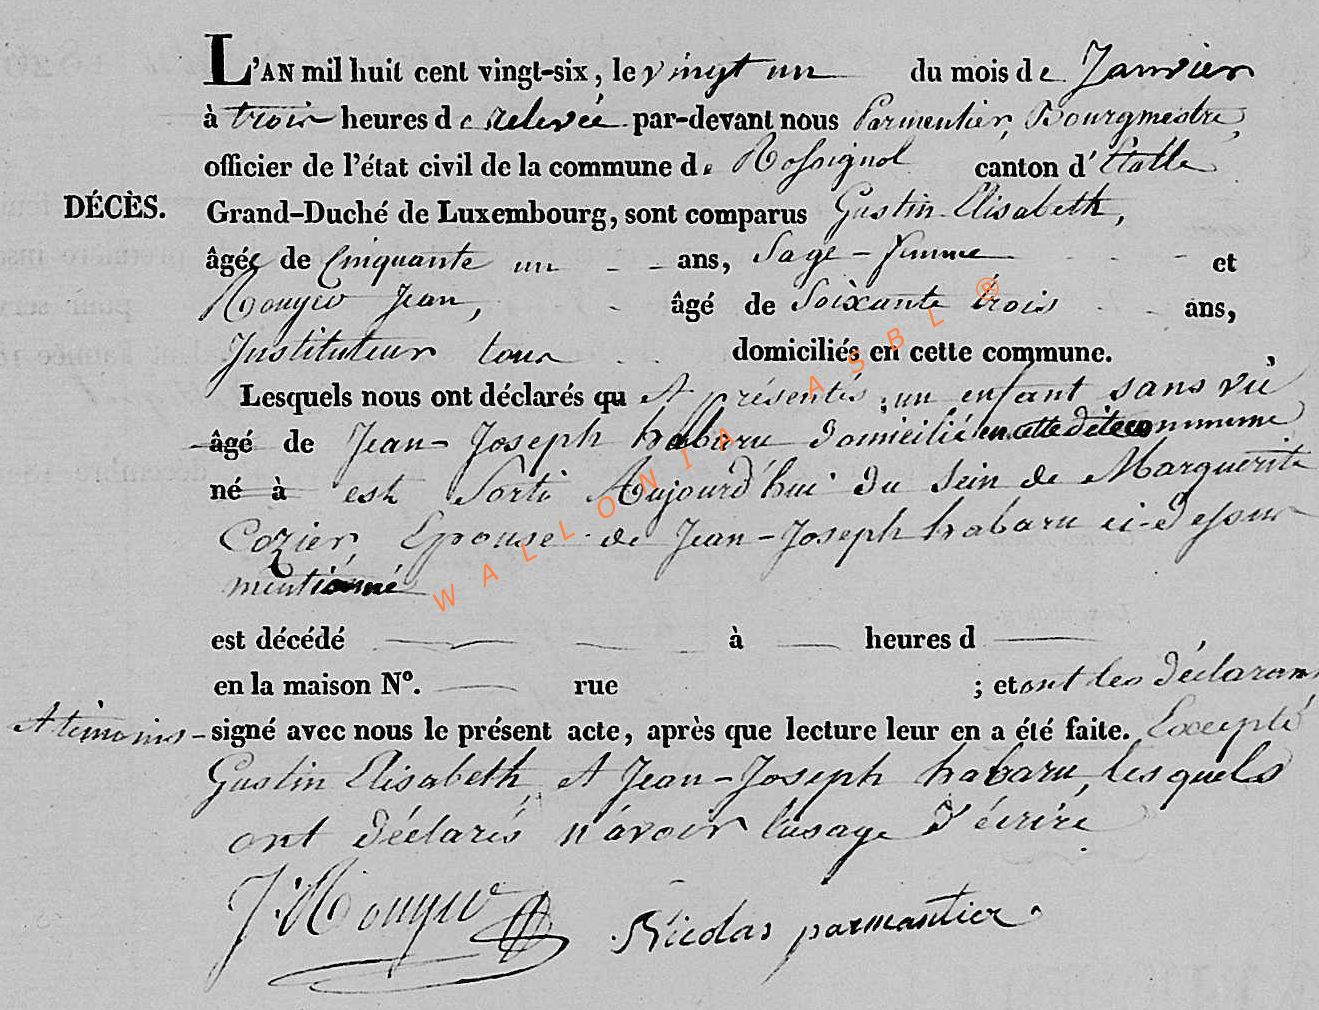 L'AN mil huit cent vingt-six, le vingt un du mois de Janvier
à trois heures de relevée par-devant nous Parmentier, Bourgmestre,
officier de l'état civil de la commune de Rossignol canton d'Etalle
DÉCÈS. Grand-Duché de Luxembourg, sont comparus Gustin Elisabeth,
âgée de Cinquante un ans, Sage-femme et
Jean, âgé de Soixante trois ans,
Instituteur tous domiciliés en cette commune.
Lesquels nous ont déclarés qu et présentés, un enfant sans vie
âgé de Jean-Joseph habaru domicilié en cette dite commune
né à est Sorti Aujourd'hui du sein de Marguerite
Cozier, Epouse de Jean-Joseph habaru ci-dessus
mentionné
est décédé à heures d
en la maison N°. rue ; et ont les déclarans
et témoins - signé avec nous le présent acte, après que lecture leur en a été faite. Excepté
Gustin Elisabeth, et Jean-Joseph habaru, lesquels
ont déclarés n'avoir l'usage d'écrire
Nicolas parmantier
WALLONIA ASBL ®